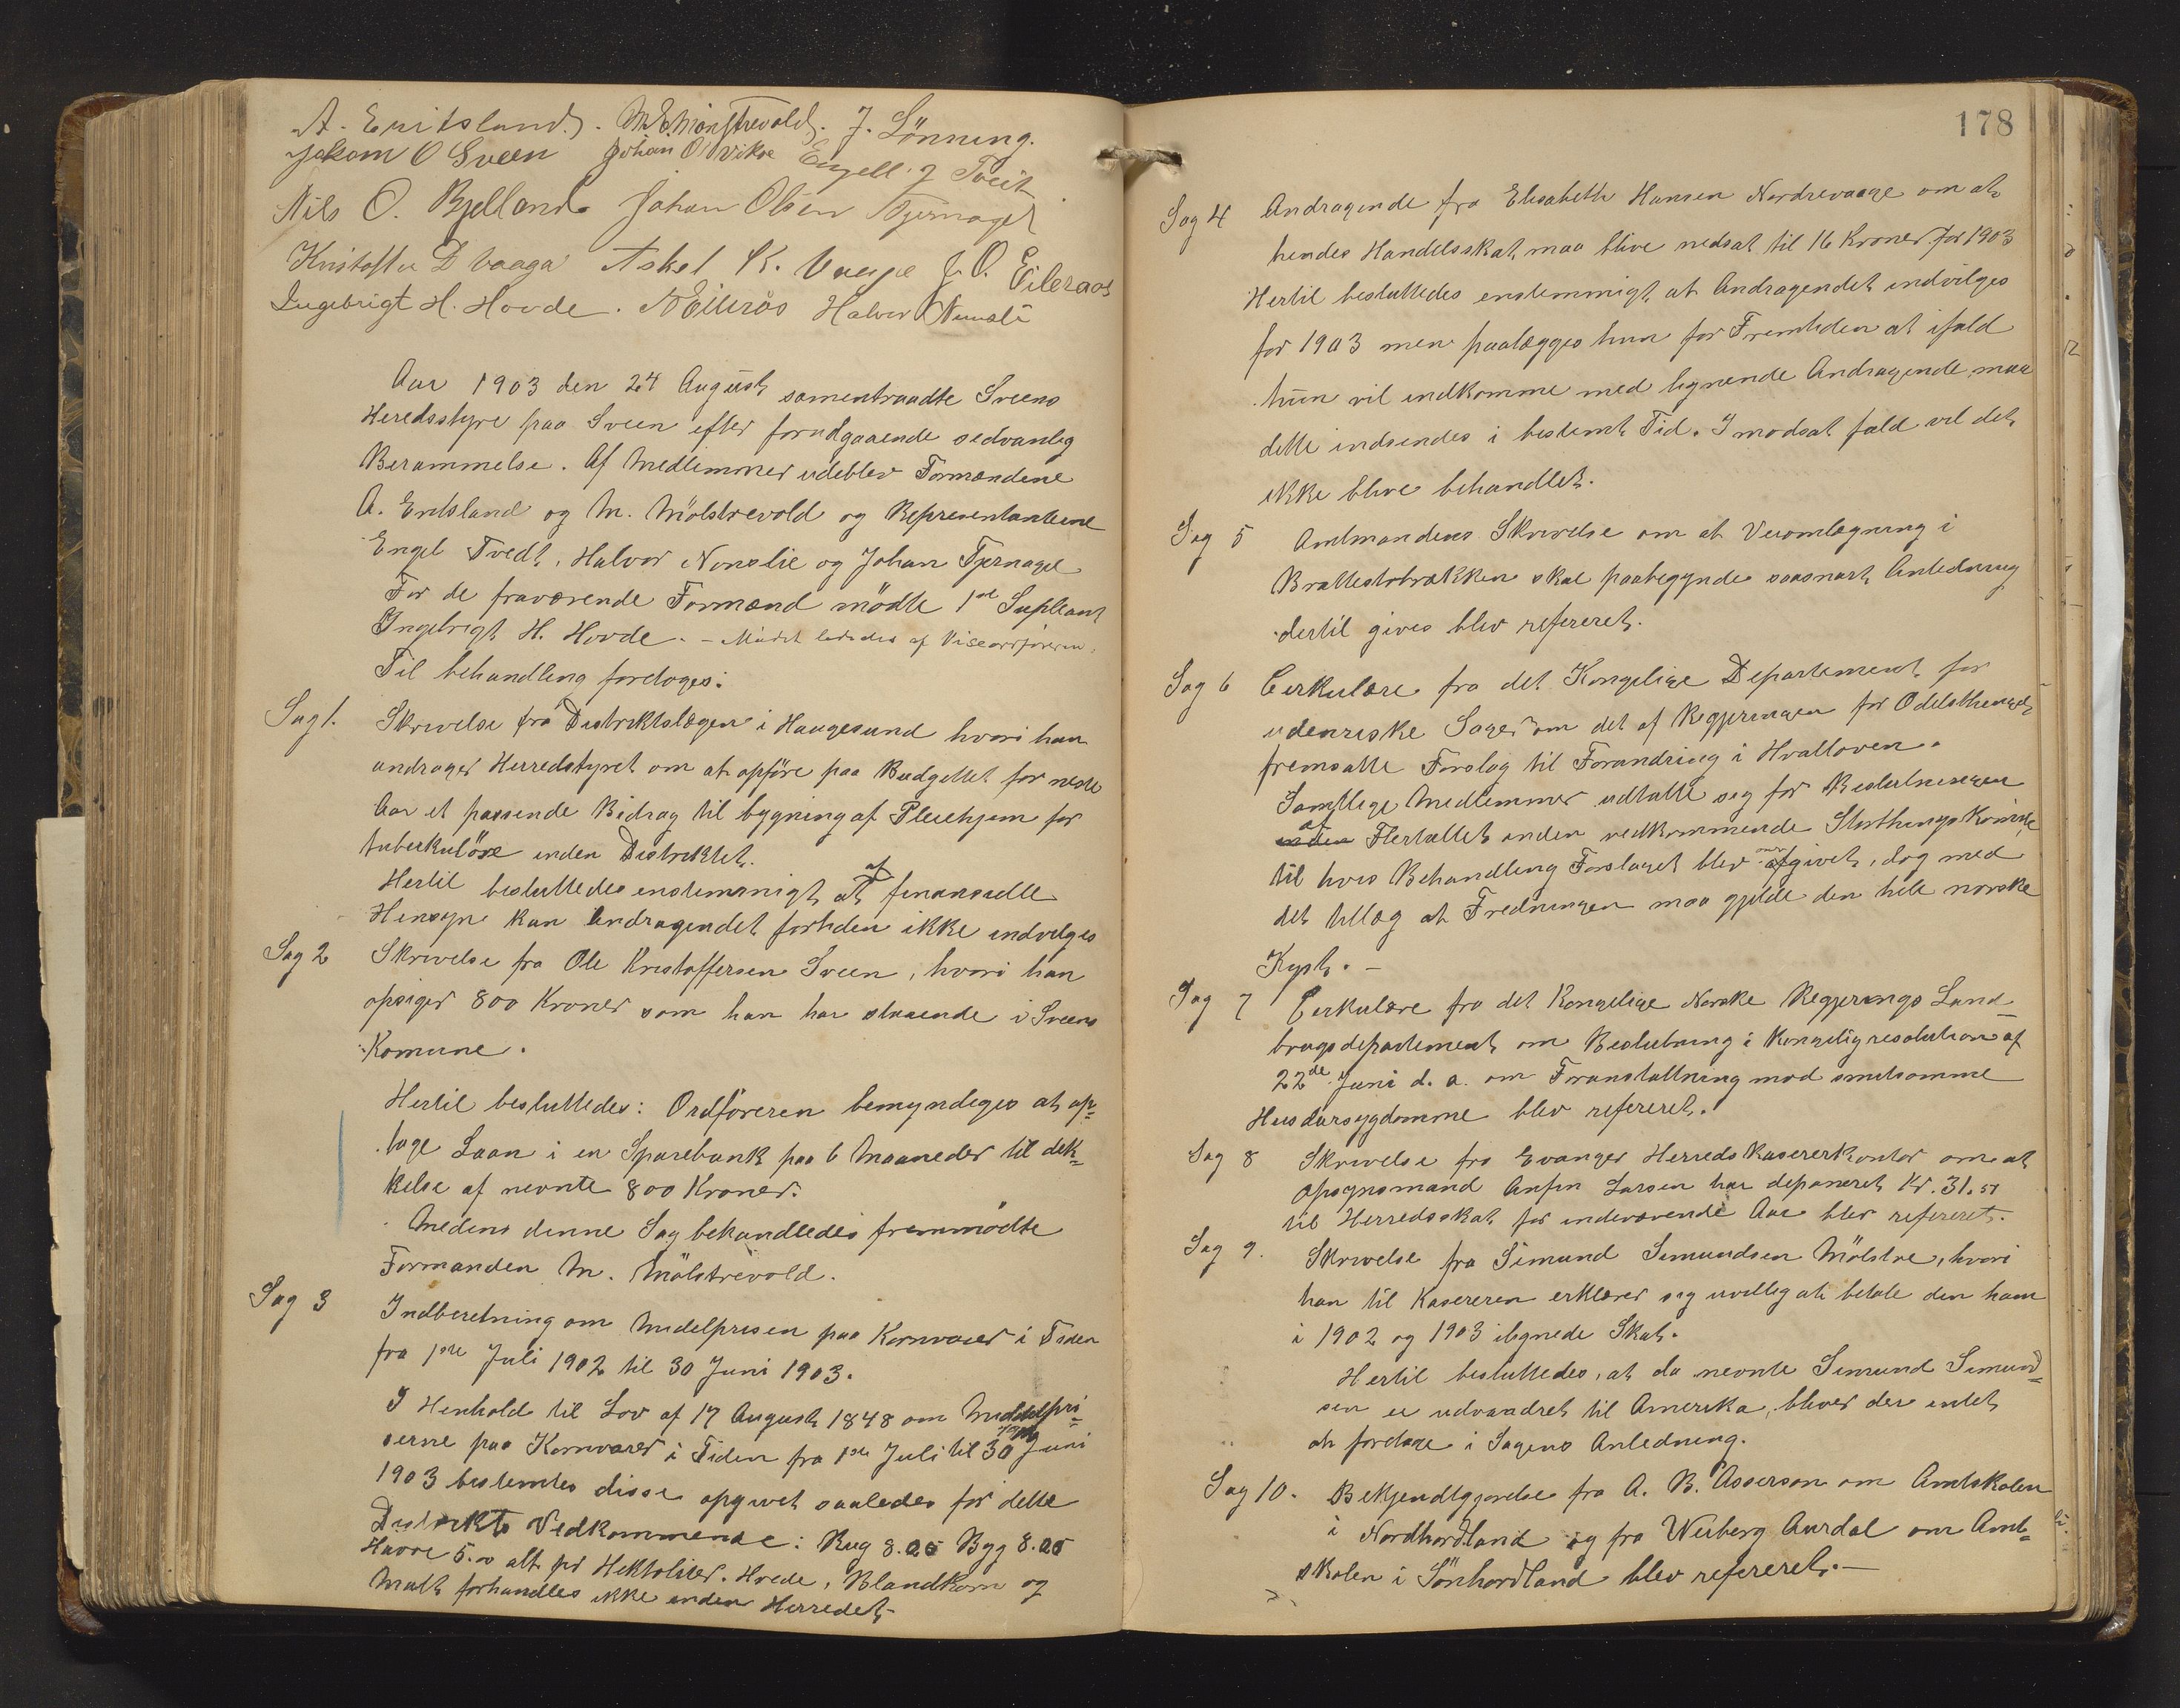 A. Eritsland. M. E. Mölstrevold. J. Lönning.
Jakom O Sveen Johan O Vikse Engell J Tveit
Nils O. Bjelland Johan Olsen Tjernagel
Kristoffer D Vaaga Askel K. Vaage J. O. Eileraas
Ingebrigt H. Hovde. N Eileraas Halvor Nonslie
Aar 1903 den 24 August samentraadte Sveens
Heredsstyre paa Sveen efter forudgaaende sedvanlig
Berammelse. Af Medlemmer udeblev Formændene
A. Eritsland og M. Mölstrevold og Representanterne
Engel Tvedt, Halvor Nonslie og Johan Tjernagel
For de fraværende Formænd mödte 1ste Supleant
Ingebrigt H. Hovde. – Mödet lededes af Viseordföreren.
Til behandling foretoges:
Sag 1. Skrivelse fra Distriktslægen i Haugesund hvori han
andrager Herredstyret om at opföre paa Budgettet for neste
Aar et passende Bidrag til bygning af Pleiehjem for
tuberkulöse inden Distriktet.
Hertil besluttedes enstemmigt at af finansielle
Hensyn kan Andragendet fortiden ikke indvilges
Sag 2 Skrivelse fra Ole Kristoffersen Sveen, hvori han
opsiger 800 Kroner som han har staaende i Sveens
Komune.
Hertil besluttedes: Ordföreren bemyndiges at op=
tage Laan i en Sparebank paa 6 Maaneder til dek=
kelse af nevnte 800 Kroner.
Medens denne Sag behandledes fremmödte
Formanden M. Mölstrevold.
Sag 3 Indberetning om Midelprisen paa Kornvarer i Tiden
fra 1ste Juli 1902 til 30 Juni 1903.
I Henhold til Lov af 17 August 1848 om Middelpri=
serne paa Kornvarer i Tiden fra 1ste Juli til 30 Juni
1903 bestemtes disse opgivet saaledes for dette
Distrikts Vedkommende: Rug 8.25 Byg 8.25
Havre 5.00 alt pr Hektoliter. Hvede, Blandkorn og
Malt forhandles ikke inden Herredet –
178
Sag 4 Andragende fra Elisabeth Hansen Nordrevaage om at
hendes Handelsskat maa blive nedsat til 16 Kroner for 1903
Hertil besluttedes enstemmigt at Andragendet indvilges
for 1903 men paalægges hun for Fremtiden at ifald
hun vil indkomme med lignende Andragende maa
dette indsendes i bestemt Tid. I modsat fald vil det
ikke blive behandlet.
Sag 5 Amtmandens Skrivelse om at Veiomlægning i
Brattestobrækken skal paabegyndes saasnart Anledning
dertil gives blev refereret.
Sag 6 Cerkulære fra det Kongelige Departement for
udenriske Sager om det af Regjeringen for Odelsthinget
fremsatte Forslag til Forandring i Hvalloven.
Samtlige Medlemmer udtalte seg for Beslutningen
af Flertallet inden vedkommende Storthings Komite
til hvis Behandling Forslaget blev over givet, dog med
det tillæg at Fredningen maa gjelde den hele norske
Kyst. –
Sag 7 Cerkulære fra det Kongelige Norske Regjerings Land
brugsdepartement om Beslutning i Kongelig resolution af
22de Juni d. a. om Foranstaltning mod smitsomme
Husdursygdomme blev refereret.
Sag 8 Skrivelse fra Evanger Herreds Kasererkontor om at
Opsynsmand Anfin Larsen har deponeret Kr. 31.51
til Herredsskat for indeværende Aar blev refereret.
Sag 9. Skrivelse fra Simund Simundsen Mölstre, hvori
han til Kasereren erklærer sig uvillig at betale den ham
i 1902 og 1903 ilignede Skat.
Hertil besluttedes, at da nevnte Simund Simund=
sen er udvandret til Amerika, bliver der intet
at foretage i Sagens Anledning.
Sag 10. Bekjendtgjørelse fra A. B. Asserson om Amtskolen
i Nordhordland og fra Weiberg Aurdal om Amt=
skolen i Sönhordland blev refereret. –